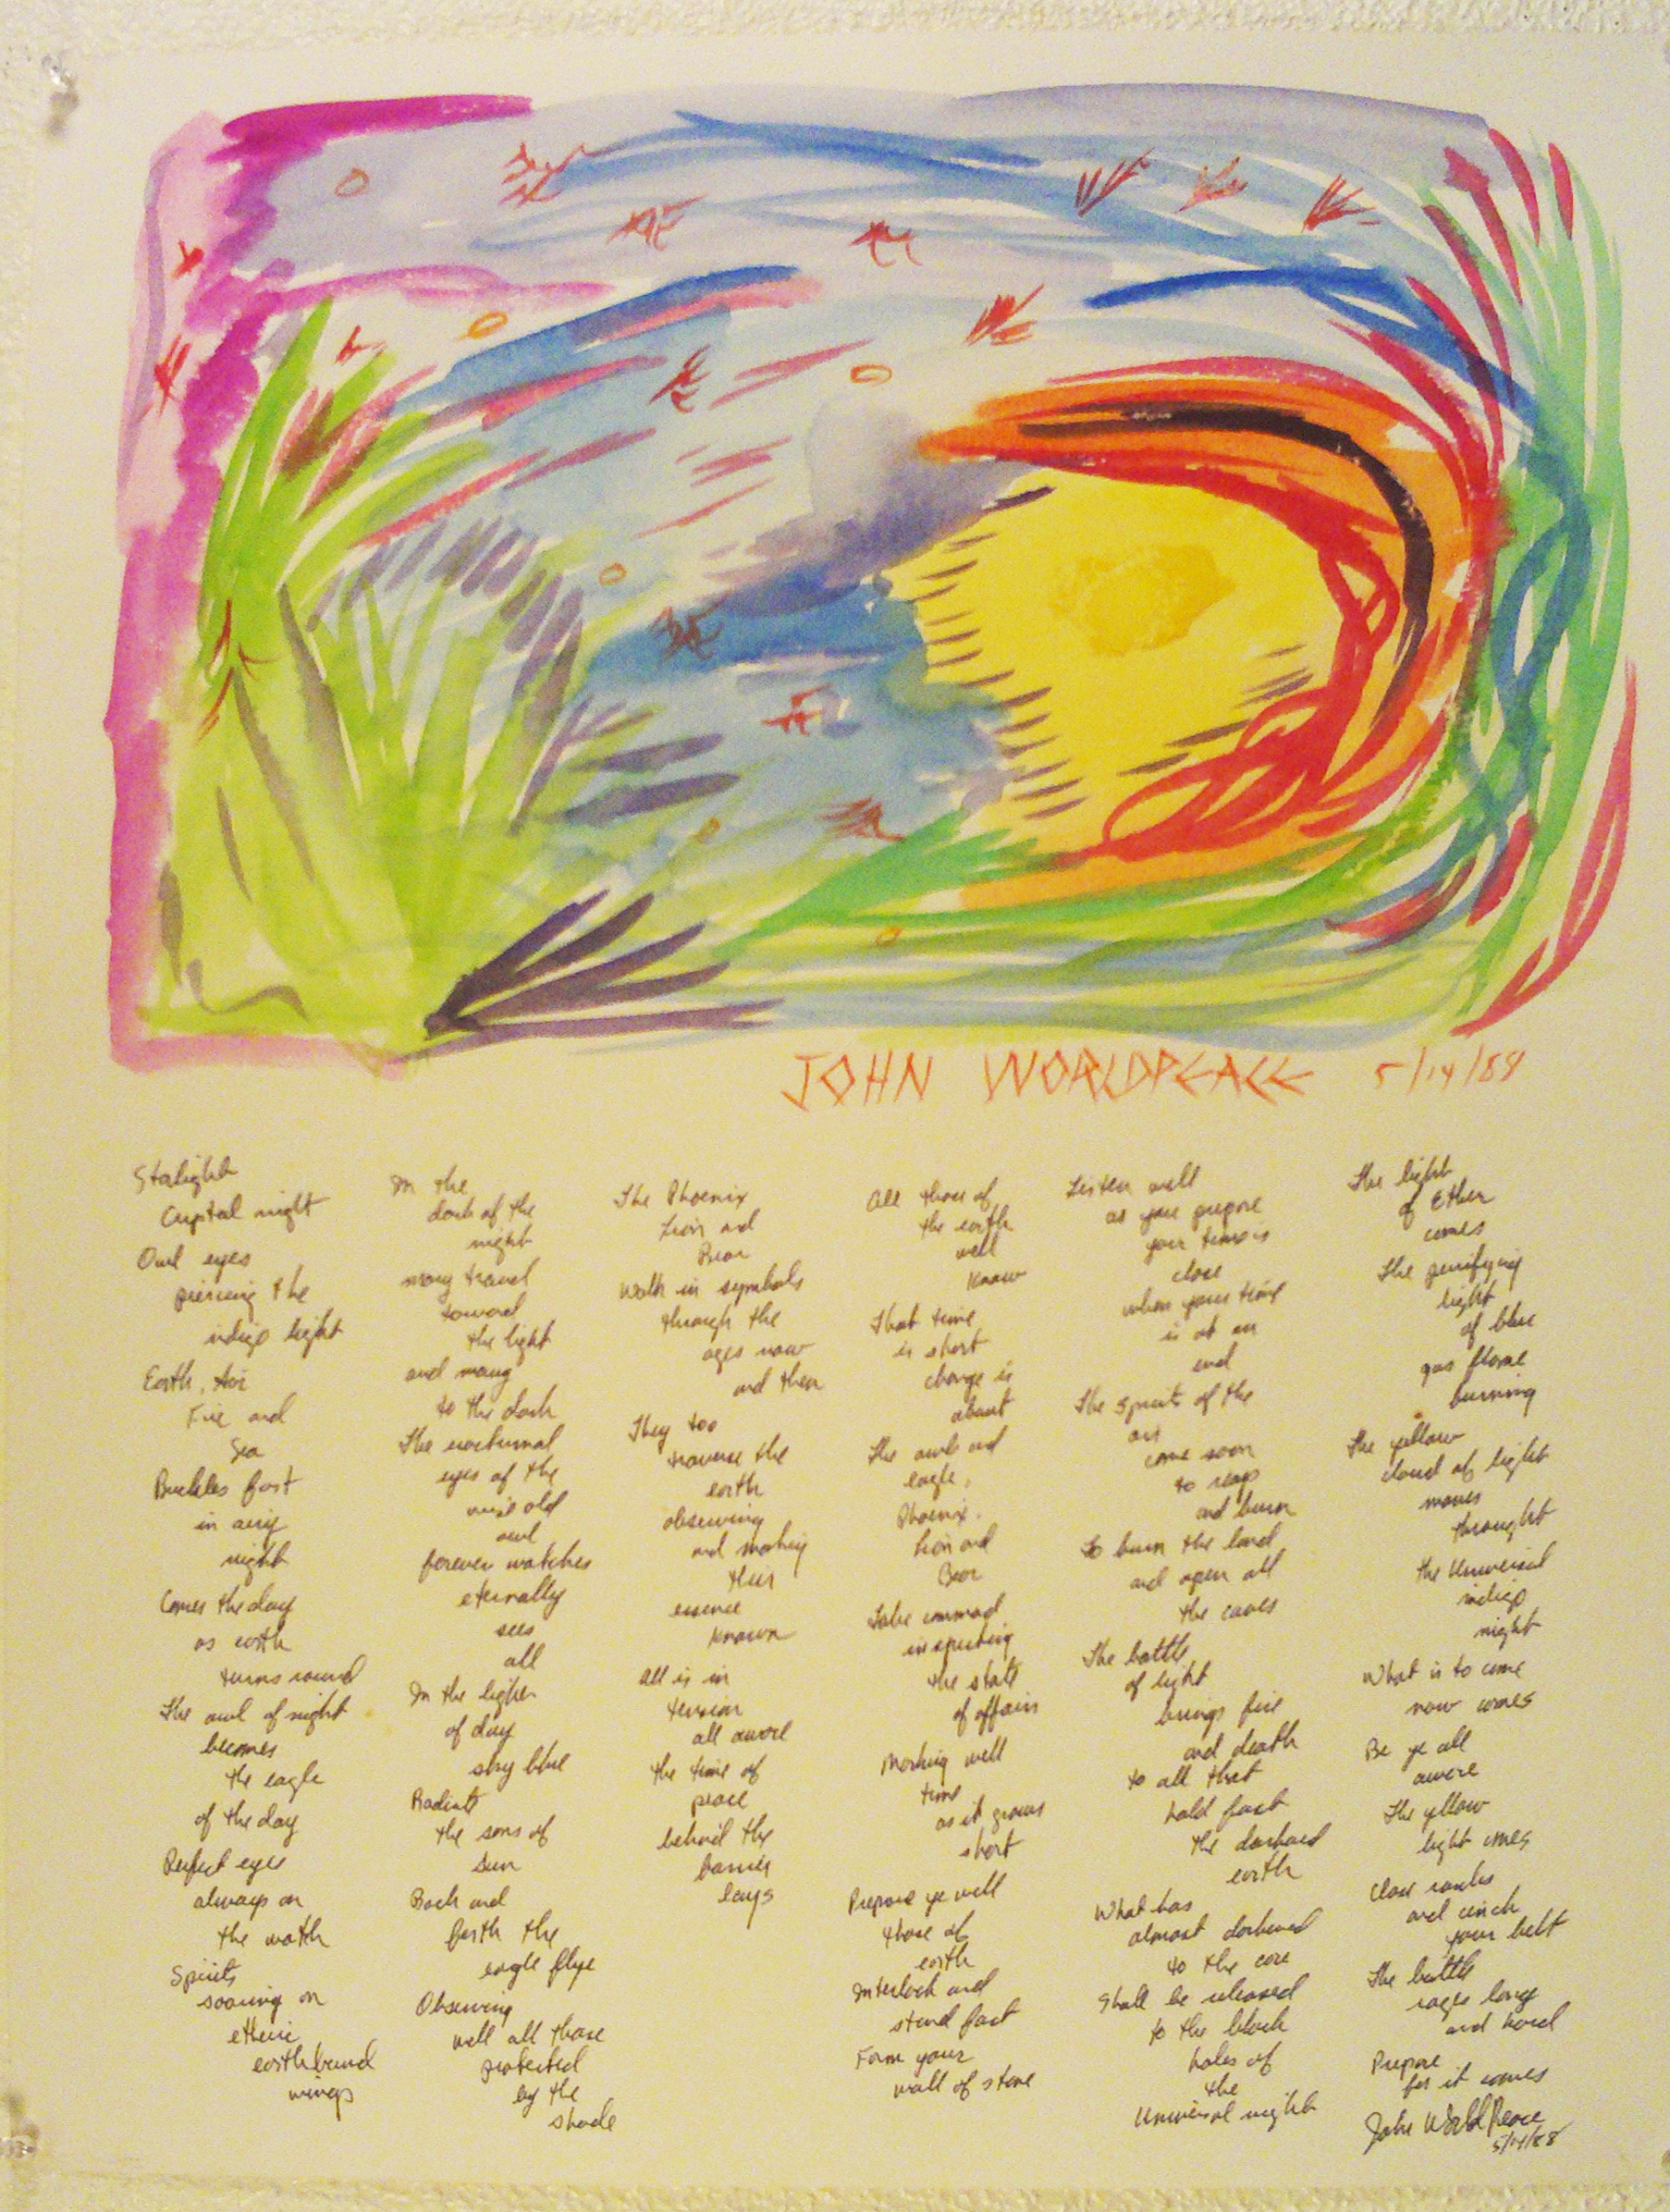 JOHN WORLDPEACE 5/14/88
Starlight
Crystal night
Owl eyes
piercing the
indigo light
Earth, Air
Fire and
Sea
Buckles fast
in airy
night
Comes the day
as earth
turns round
The owl of night
becomes
the eagle
of the day
Perfect eyes
always on
the watch
Spirits
soaring on
etheric
earthbound
wings
In the
dark of the
night
many travel
toward
the light
and many
to the dark
The nocturnal
eyes of the
wise old
owl
forever watches
eternally
sees
all
In the light
of day
sky blue
Radiates
the sons of
sun
Back and
forth the
eagle flys
Observing
well all those
protected
by the
shade
The Phoenix
Lion and
Bear
Walk in symbols
through the
ages now
and then
They too
traverse the
earth
observing
and making
their
essence
known
All is in
tension
all aware
the time of
peace
behind the
barrier
lays
All those of
the earth
well
know
That time
is short
change is
about
The owl and
eagle,
Phoenix,
Lion and
Bear
Take command
inspecting
the state
of affairs
Marking well
time
as it grows
short
Prepare ye well
those of
earth
Interlock and
stand fast
Form your
wall of stone
Listen well
as you prepare
your time is
close
when your time
is at an
end
The spirits of the
air
come soon
to reap
and burn
To burn the land
and open all
the caves
The battle
of light
brings fire
and death
to all that
hold fast
the darkened
earth
What has
almost darkened
to the core
Shall be released
to the black
holes of
the
Universal night
The light
of Ether
comes
The purifying
light
of blue
gas flame
burning
The yellow
cloud of light
moves
throught
the Universal
indigo
night
What is to come
now comes
Be ye all
aware
The yellow
light comes
Close ranks
and cinch
your belt
The battle
rages long
and hard
Prepare
for it comes
John WorldPeace
5/14/88